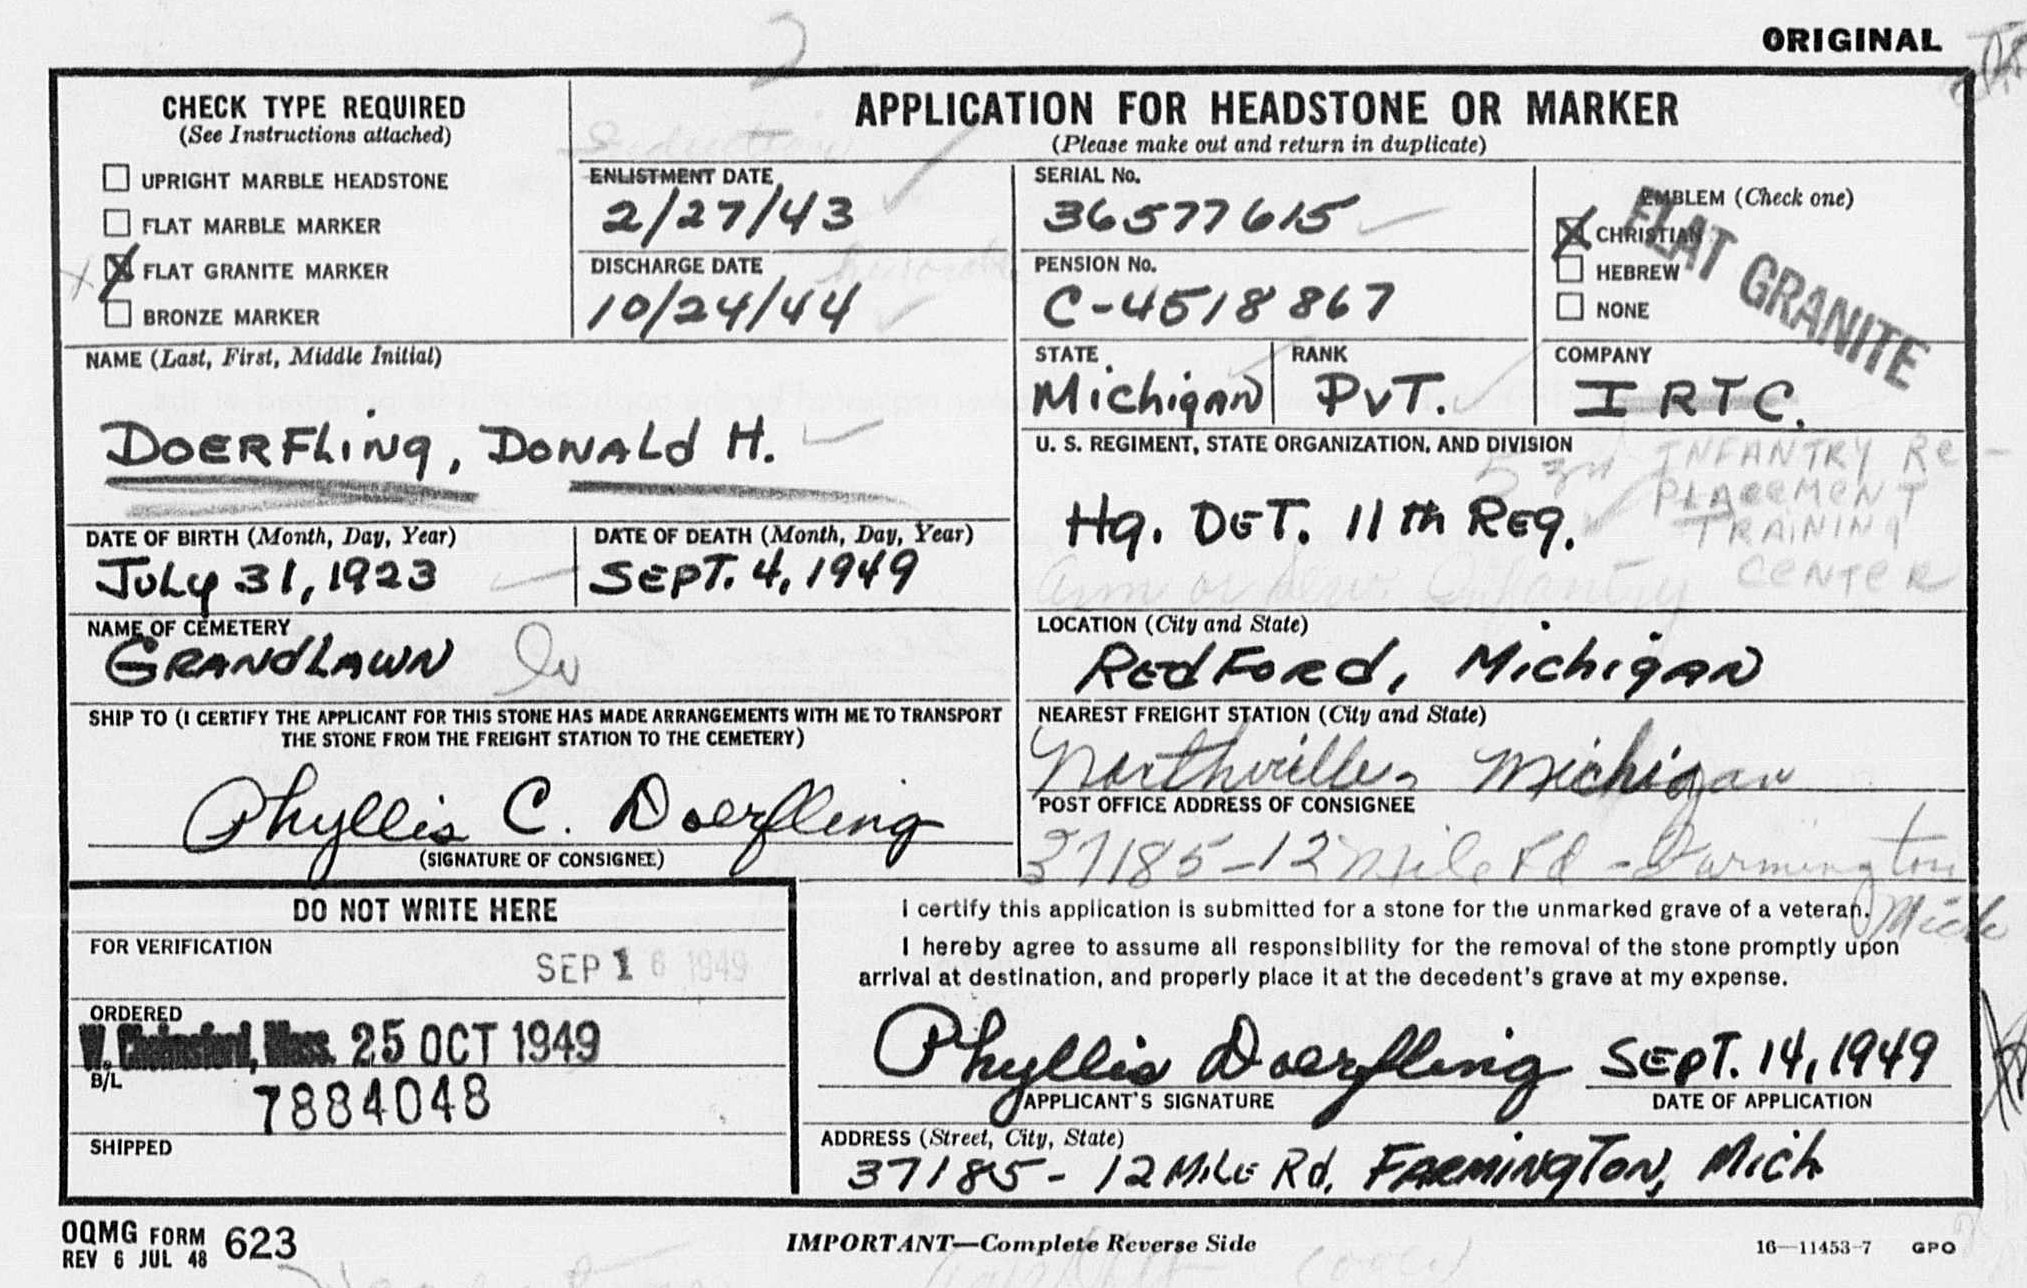 ORIGINAL
CHECK TYPE REQUIRED
(See Instructions attached)
UPRIGHT MARBLE HEADSTONE
FLAT MARBLE MARKER
FLAT GRANITE MARKER
BRONZE MARKER
APPLICATION FOR HEADSTONE OR MARKER
(Please make out and return in duplicate)
Induction
ENLISTMENT DATE
2/27/43
DISCHARGE DATE
10/24/44
SERIAL No.
36577615
PENSION No.
C-4518867
EMBLEM (Check one)
CHRISTIAN
HEBREW
NONE
FLAT GRANITE
NAME (Last, First, Middle Initial)
DOERFLING, DONALD H.
STATE
MICHIGAN
RANK
PVT.
COMPANY
IRTC.
U. S. REGIMENT, STATE ORGANIZATION, AND DIVISION
53rd
HQ. DET. 11TH REG.
INFANTRY RE-
PLACEMENT
TRAINING
CENTER
Arm or Serv. Infantry
DATE OF BIRTH (Month, Day, Year)
JULY 31, 1923
DATE OF DEATH (Month, Day, Year)
SEPT. 4, 1949
NAME OF CEMETERY
GRANDLAWN
LOCATION (City and State)
REDFORD, MICHIGAN
SHIP TO (I CERTIFY THE APPLICANT FOR THIS STONE HAS MADE ARRANGEMENTS WITH ME TO TRANSPORT
THE STONE FROM THE FREIGHT STATION TO THE CEMETERY)
Phyllis C. Doerfling
(SIGNATURE OF CONSIGNEE)
NEAREST FREIGHT STATION (City and State)
Northville, Michigan
POST OFFICE ADDRESS OF CONSIGNEE
37185-12 Mile Rd - Farmington
Mich
DO NOT WRITE HERE
FOR VERIFICATION
SEP 16 1949
ORDERED
W. Chelmsford, Mass. 25 OCT 1949
B/L
7884048
SHIPPED
I certify this application is submitted for a stone for the unmarked grave of a veteran.
I hereby agree to assume all responsibility for the removal of the stone promptly upon
arrival at destination, and properly place it at the decedent's grave at my expense.
Phyllis Doerfling SEPT. 14, 1949
APPLICANT'S SIGNATURE
DATE OF APPLICATION
ADDRESS (Street, City, State)
37185 - 12 MILE Rd, FARMINGTON, MICH
OQMG FORM 623
REV 6 JUL 48
IMPORTANT—Complete Reverse Side
16—11453-7 GPO